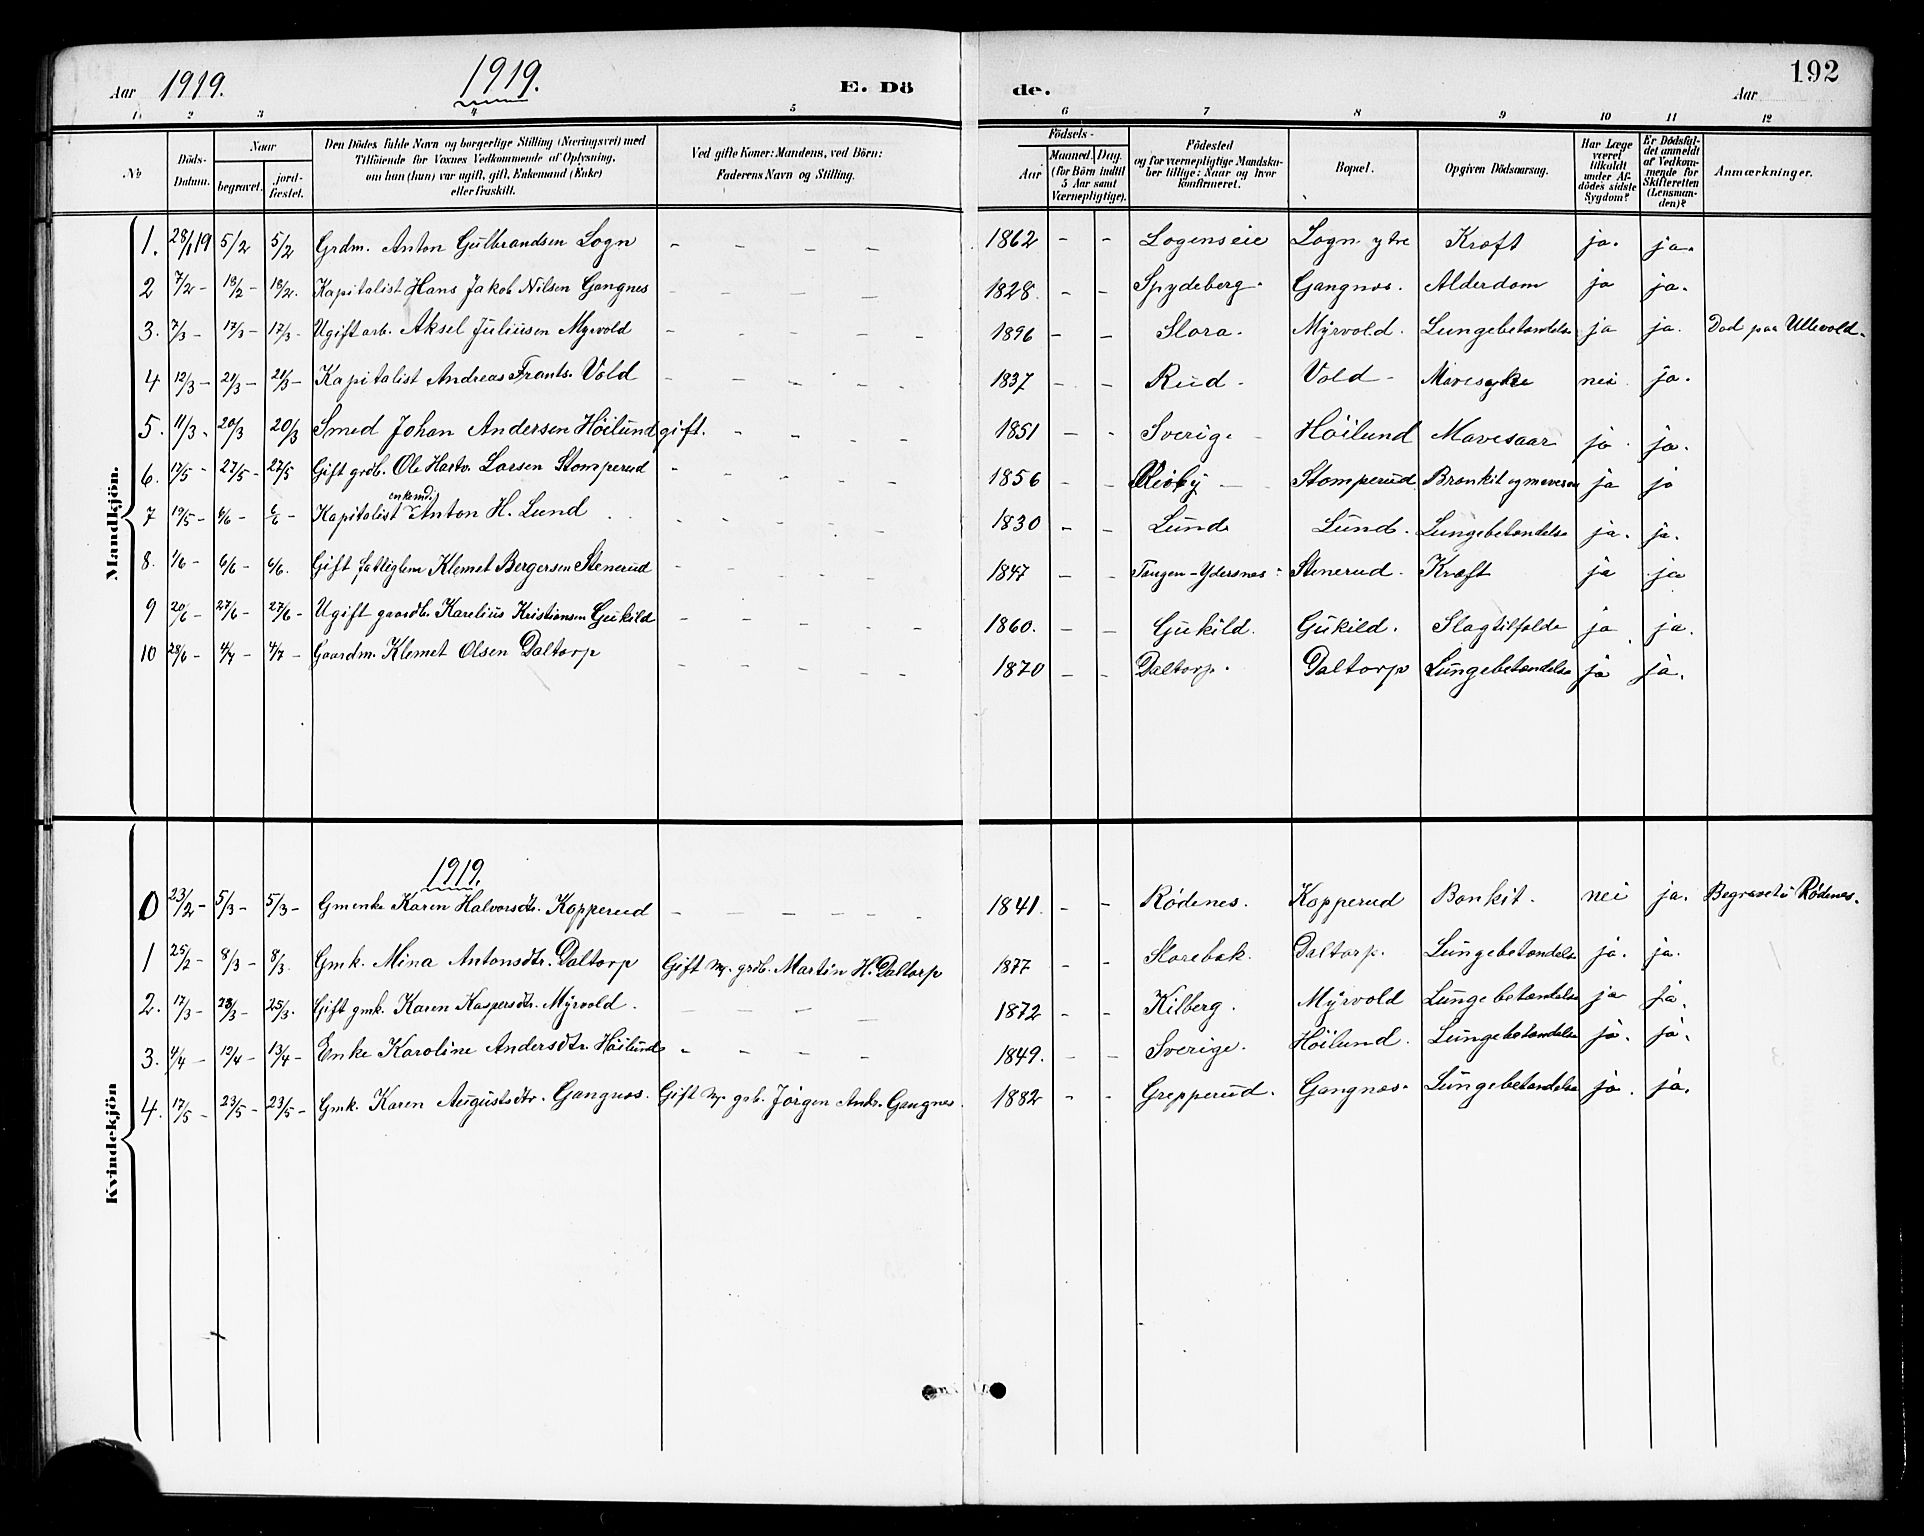 192
Aar 1919. 1919. E. Dö de. Aar
1. 2 3 4 5 6 7 8 9 10 11 12
No
Döds-Datum.
Naar begravet. jord-fæstet.
Den Dödes fulde Navn og borgerlige Stilling (Næringsvei) med
Tilföiende for Voxnes Vedkommende af Oplysning,
om han (hun) var ugift, gift, Enkemand (Enke)
eller fraskilt.
Ved gifte Koner: Mandens, ved Börn:
Faderens Navn og Stilling.
Födsels-
Aar Maaned. Dag. (for Börn indtil 5 Aar samt Værnepligtige).
Födested
og for værnepligtige Mandska-
ber tillige: Naar og hvor
konfirmeret.
Bopæl.
Opgiven Dödsaarsag.
Har Læge været tilkaldt under Af-dödes sidste Sygdom?
Er Dödsfal-det anmeldt af Vedkom-mende for Skifteretten (Lensman-den)?
Anmærkninger.
Mandkjön.
1. 28/1 19 5/2 5/2 Grdm. Anton Gulbrandsen Logn - - - - 1862 - - Logenseie Logn ytre Kræft ja. ja.
2 7/2 - 18/2 - 18/2. Kapitalist Hans Jakob Nilsen Gangnes - - - - 1828. - - Spydeberg. Gangnæs. Alderdom ja ja.
3. 7/3 - 17/3 - 17/3 - Ugift arb. Aksel Juliusen Myrvold - - - - 1896 - - Slora. Myrvold. Lungebetændelse ja ja. Död paa Ullevold.
4 12/3 - 21/3 - 21/3 - Kapitalist Andreas Frants. Vold - - - - 1837 - - Rud - Vold - Mavesyke nei. ja.
5. 11/3 - 20/3 20/3 Smed Johan Andersen Höilund gift. - - - - 1851 - - Sverige - Höilund Mavesaar ja. ja.
6. 17/5 - 27/5 - 27/5 Gift grdb. Ole Hartv. Larsen Stomperud - - - - 1856 - - Risby - Stomperud. Bronkit og mavesaar ja ja
7 19/5 - 6/6 - 6/6 - Kapitalist enkemd. Anton H. Lund - - - - 1830 - - Lund Lund. Lungebetændelse ja. ja.
8. 1/6 - 6/6 - 6/6. Gift fattiglem Klemet Bergersen Stenerud - - - - 1847 - - Tangen - Ydersnes - Stenerud. Kræft ja ja
9 20/6 - 27/6 - 27/6 - Ugift gaardb. Karelius Kristiansen Gukild - - - - 1860. - - Gukild. Gukild. Slagtilfælde ja. ja.
10 28/6 - 4/7 - 4/7 - Gaardm. Klemet Olsen Daltorp - - - - 1870 - - Daltorp. Daltorp Lungebetændelse ja ja.
Kvindekjön
1919.
0 23/2 - 5/3 - 5/3 - Gmenke Karen Halvorsdtr. Kopperud - - - - 1841. - - Rödenes. Kopperud Bonkit. nei ja. Begravet i Rödenes.
1 25/2 - 8/3 - 8/3. Gmk. Mina Antonsdtr. Daltorp Gift m. grdb. Martin H. Daltorp 1877 - - Slorebak. Daltorp. Lungebetændelse ja. ja.
2. 17/3 - 23/3 - 25/3. Gift gmk. Karen Kaspersdtr. Myrvold. - - - - 1872 - - Kilberg. Myrvold Lungebetændelse ja ja.
3. 4/4 - 12/4 - 13/4 - Enke Karoline Andersdtr. Höilund - - - - 1849. - - Sverige. Höilund. Lungebetændelse ja. ja.
4. 17/5 - 23/5 - 23/5 - Gmk. Karen Augustsdtr. Gangnæs. Gift m. grb. Jörgen Andr. Gangnes. 1882 - - Grepperud. Gangnæs. Lungebetændelse ja. ja.